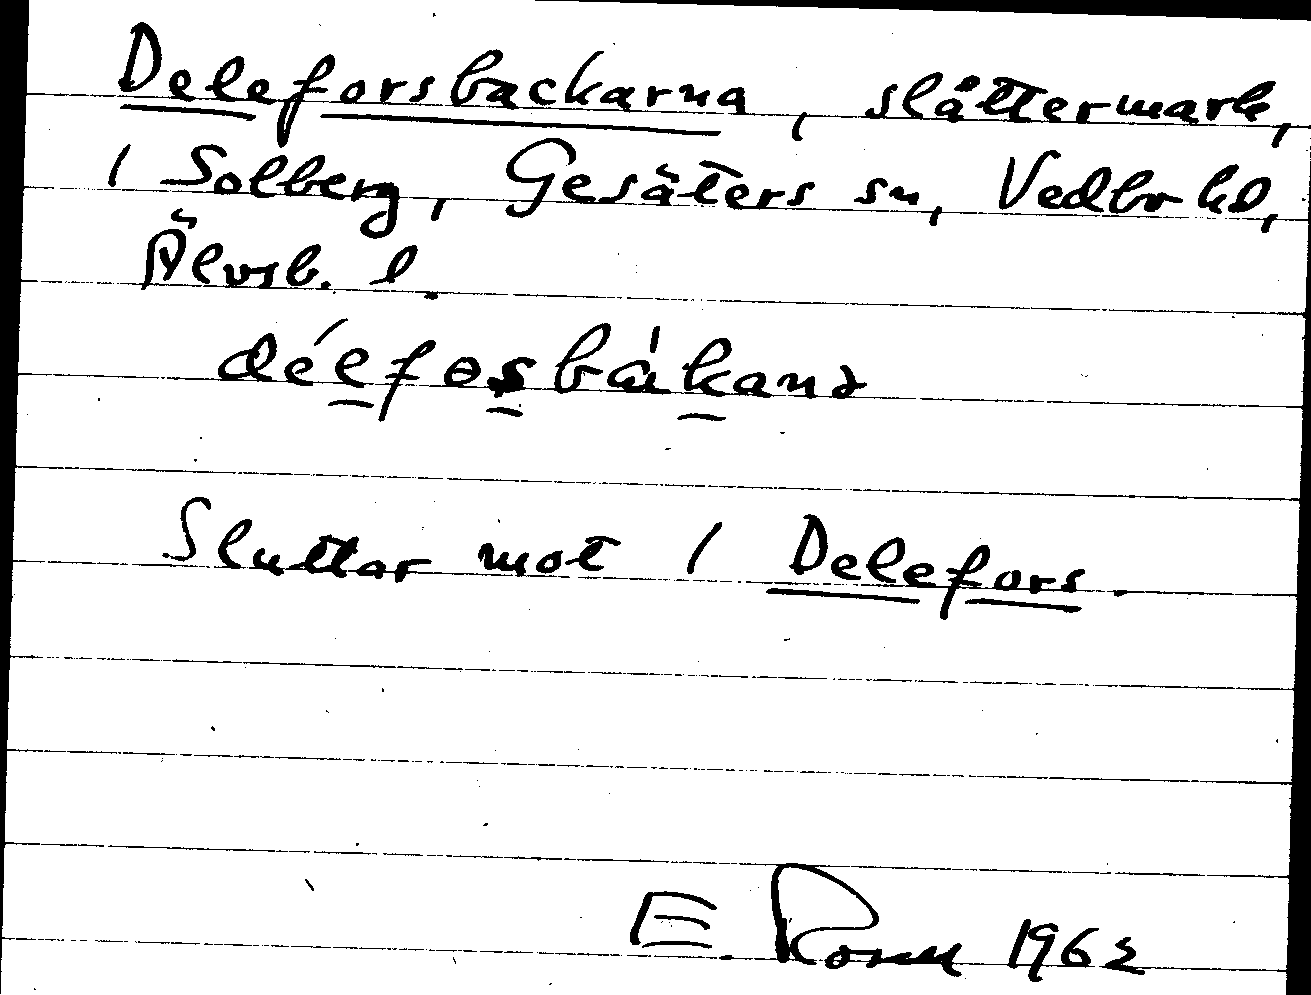 Deleforsbackarna, slåttermark,
/ Solberg, Gesäters sn, Vedbo hd,
Älvsb. l.
déefosbákanə
Sluttar mot / Delefors.
E. 1962